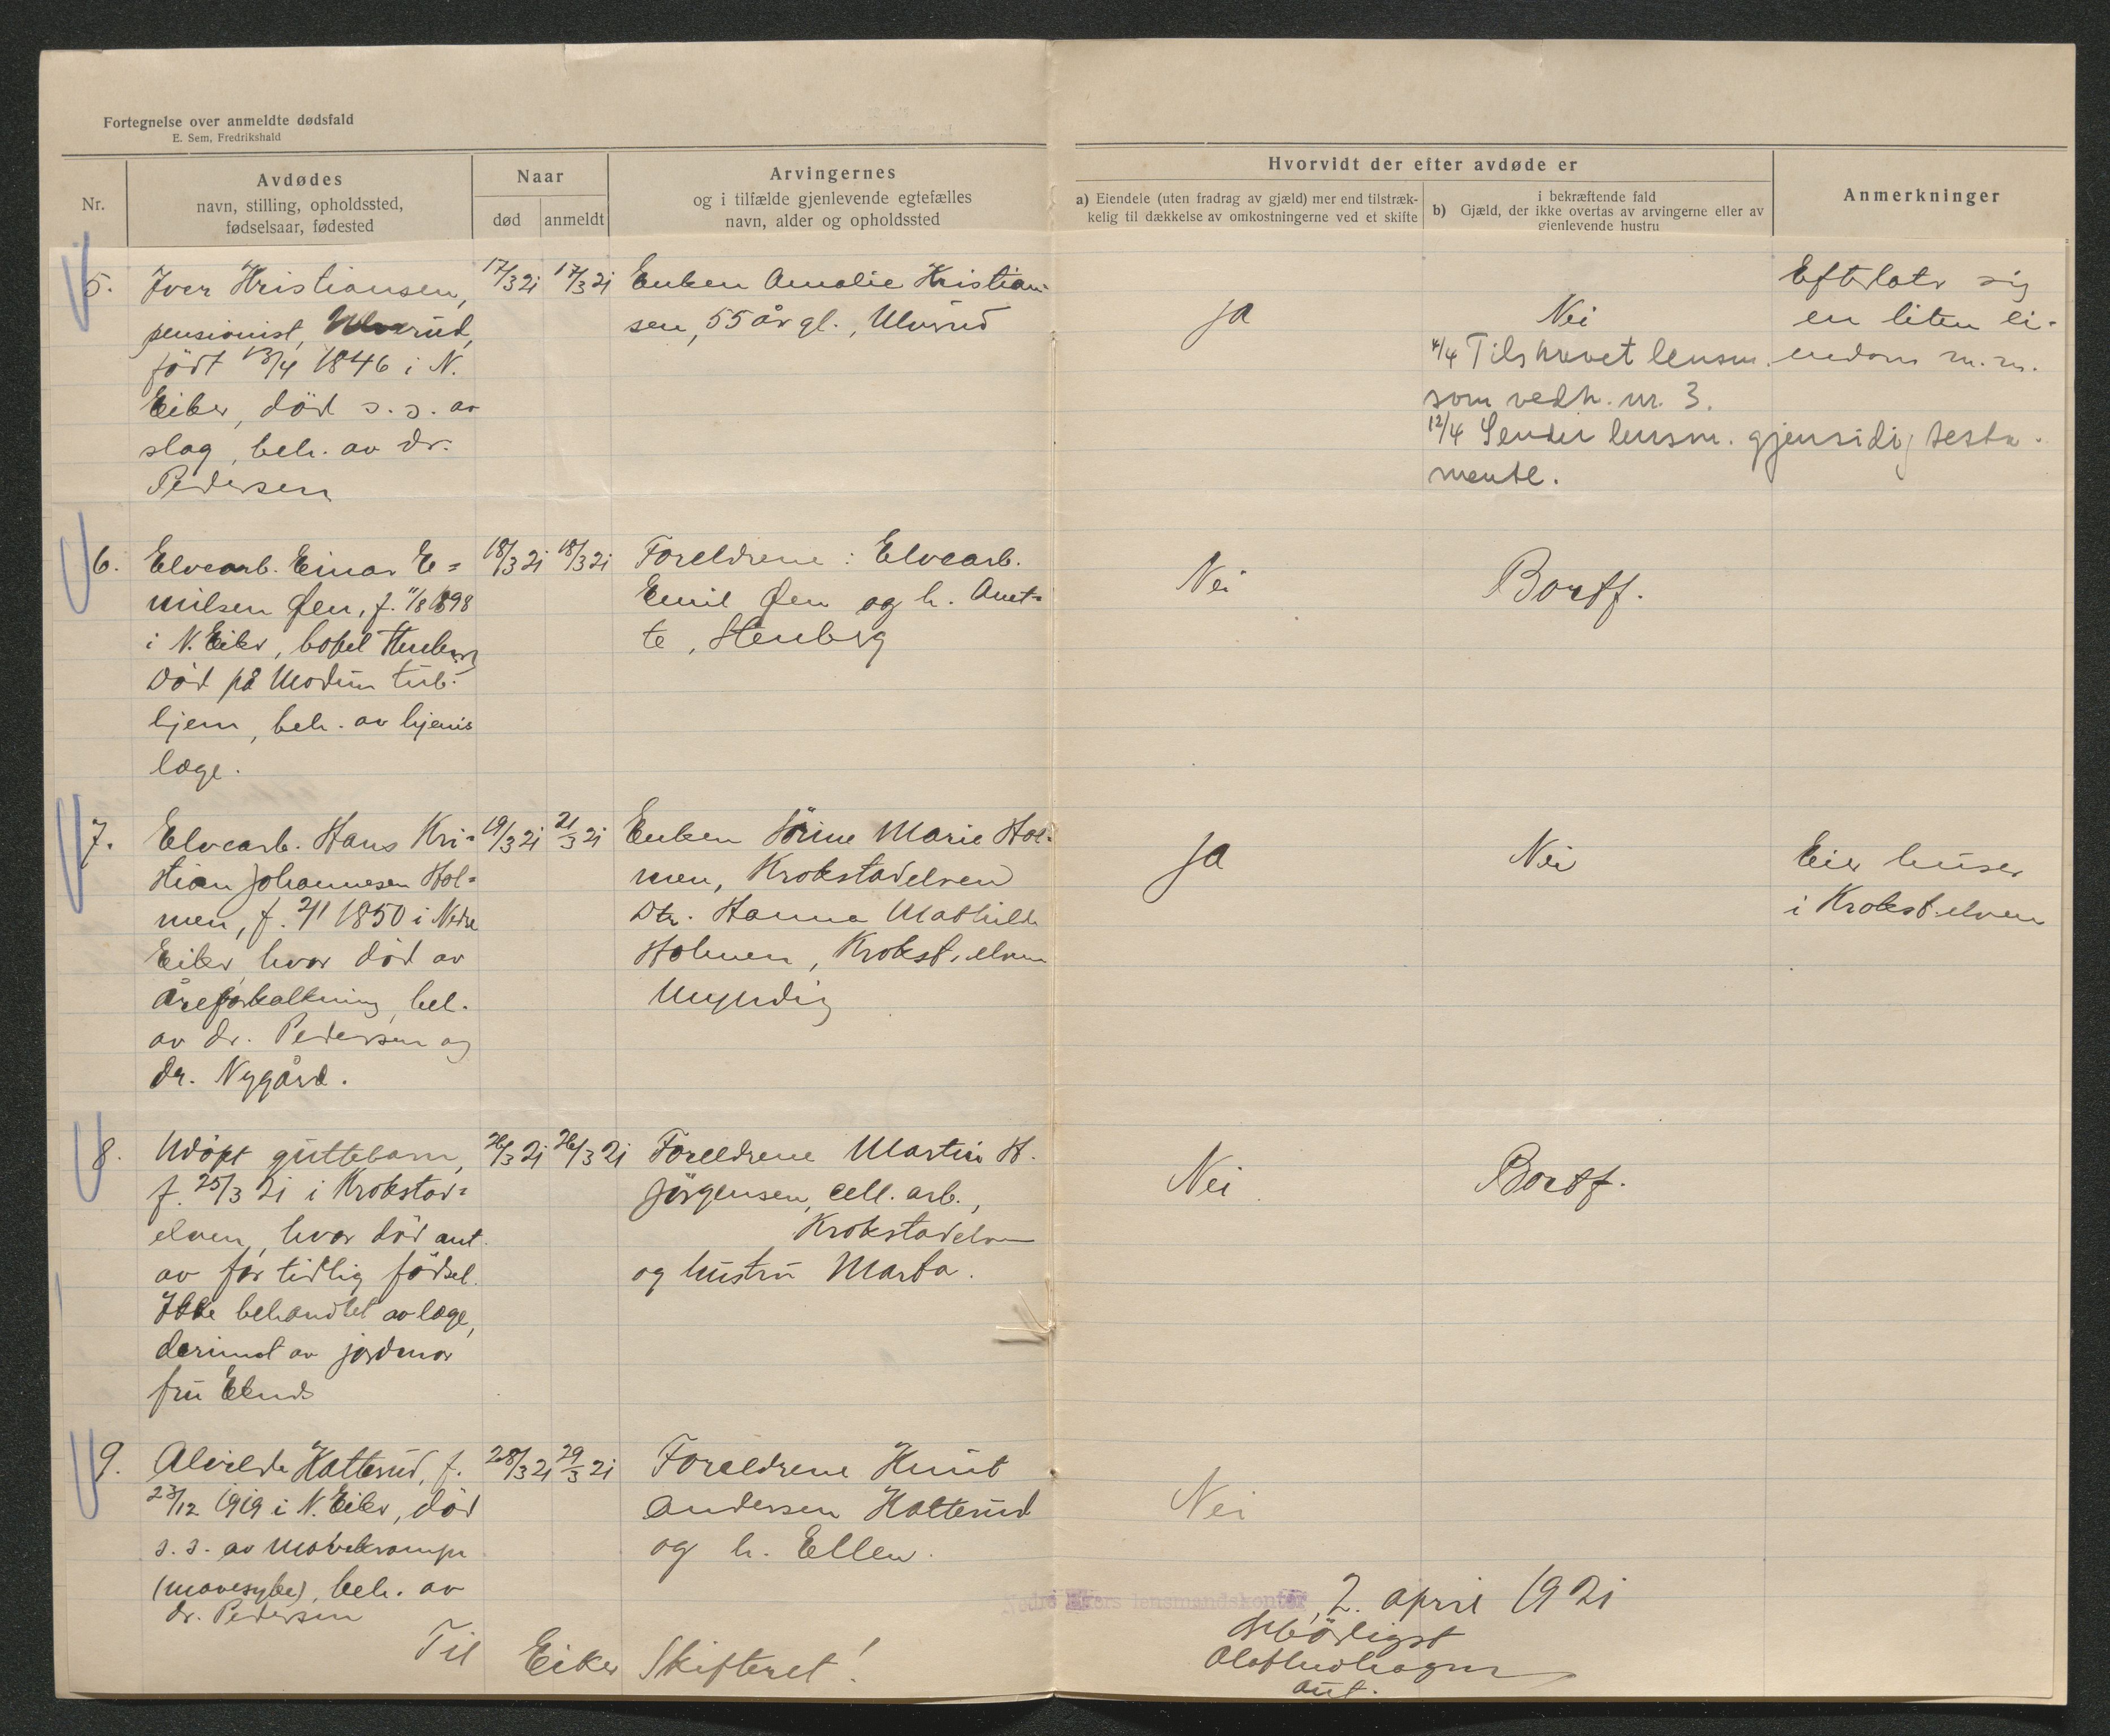 Fortegnelse over anmeldte dødsfald
E. Sem, Fredrikshald
Nr.
Avdødes
navn, stilling, opholdssted,
fødselsaar, fødested
Naar
død
anmeldt
Arvingernes
og i tilfælde gjenlevende egtefælles
navn, alder og opholdssted
Hvorvidt der efter avdøde er
a) Eiendele (uten fradrag av gjæld) mer end tilstræk-
kelig til dækkelse av omkostningerne ved et skifte
i bekræftende fald
b) Gjæld, der ikke overtas av arvingerne eller av
gjenlevende hustru
Anmerkninger
5.
Iver Kristiansen,
pensionist, Ulverud,
født 13/4 1846 i N.
Eiker, död s. s. av
slag, beh. av dr.
Pedersen
17/3 21
17/3 21
Enken Amalie Kristian-
sen, 55 år gl., Ulverud
Ja
Nei
4/4 Tilskrevet lensm.
som vedk. nr. 3.
12/4 Sender lensm. gjensidig testa-
mente.
Efterlate sig
en liten ei-
endom m.m.
6.
Elvearb. Einar E=
milsen Øen, f. 11/8 1898
i N. Eiker, bopel Stenberg
Död på Modum tub.
hjem, beh. av hjemis
læge.
18/3 21
18/3 21
Foreldrene: Elvearb.
Emil Øen og h. Anet=
te, Stenberg
Nei
Bortf.
7.
Elvearb. Hans Kri=
stian Johannesen Hol=
men, f. 2/1 1850 i Nedre
Eiker, hvor död av
åreforkalkning, beh.
av dr. Pedersen og
dr. Nygård.
19/3 21
21/3 21
Enken Sörine Marie Hol=
men, Krokstadelven
Dtr. Hanna Mathilde
Holmen, Krokst.elven
Umyndig
Ja
Nei
Eier huser
i Krokst.elven
8.
Udöpt guttebarn,
f. 25/3 21 i Krokstad=
elven, hvor död ant.
av for tidlig födsel.
Ikke behandlet av læge,
derimot av jordmor
fru
26/3 21
26/3 21
Foreldrene Martin H.
Jörgensen, cell. arb.,
Krokstadelven
og hustru Marta.
Nei
Bortf.
9.
Alvilde Hatterud, f.
23/12 1919 i N. Eiker, död
s. s. av mavekrampe
(mavesyke), beh. av
dr. Pedersen
28/3 21
29/3 21
Foreldrene Knut
Andersen Hatterud
og h. Ellen.
Nei
Nedre Ekers lensmandskontor, 2. april 1921
Ærbödigst
aut.
Til Eiker Skifteret!